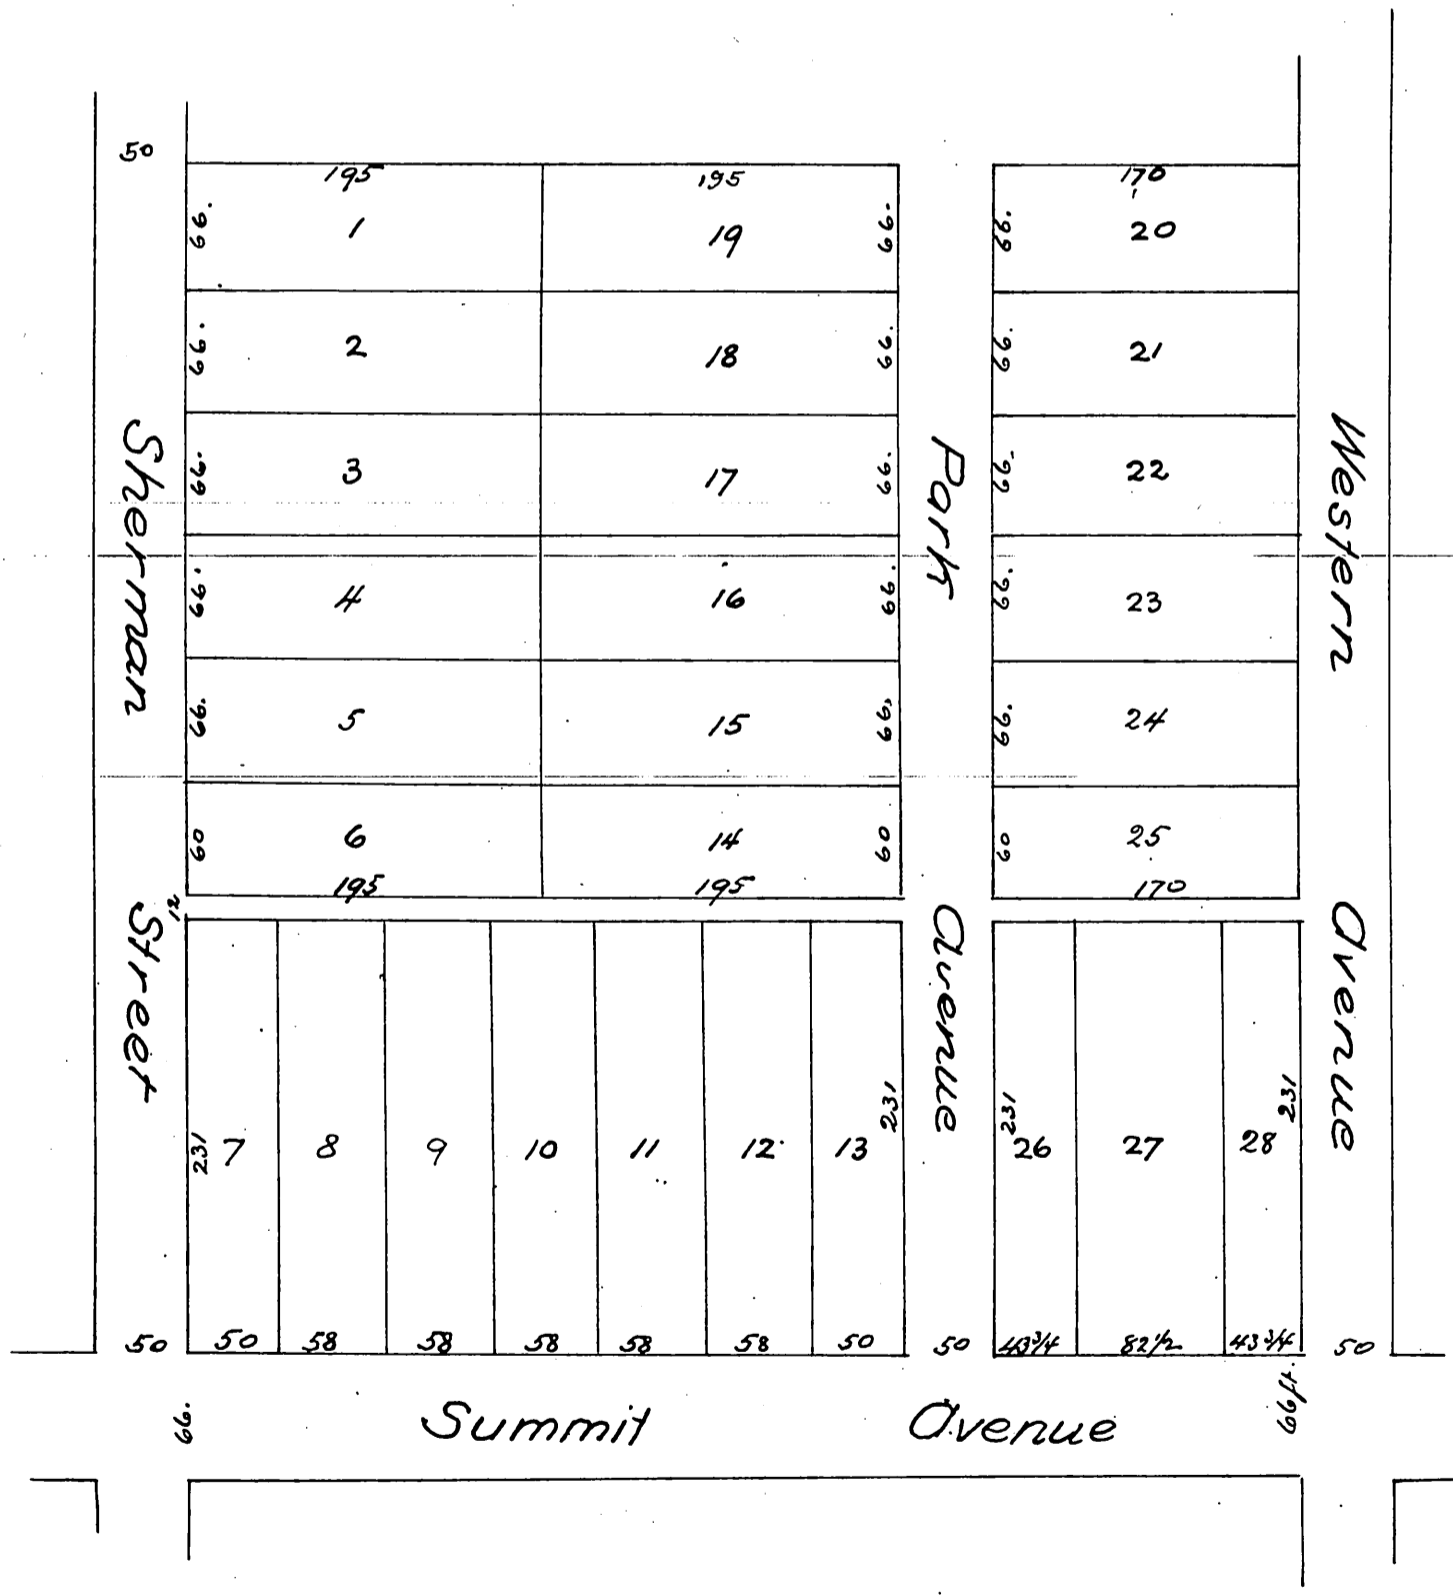 50
195
195
170
66.
1
19
66.
66.
20
66.
2
18
66.
66.
21
66.
3
17
66.
66.
22
66.
4
16
66.
66.
23
66.
5
15
66.
66.
24
60
6
14
60
60
25
195
195
170
12
Sherman Street
Park Avenue
Western Avenue
231
7
8
9
10
11
12
13
231
231
26
27
28
231
50
50
58
58
58
58
58
50
50
43 3/4
82 1/2
43 3/4
50
66.
Summit Avenue
66 ft.